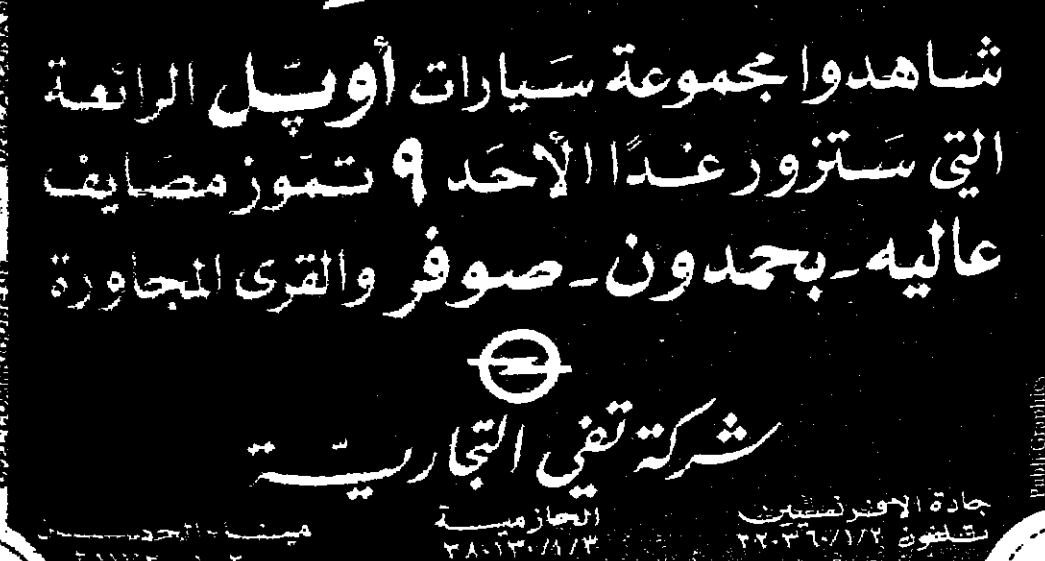 شاهدوا مجموعة سَيارات أوپـّل الرائعة
التي سَتزور غدًا الأحَد ٩ تمّوز مصَايف
عاليه ـ بحمدون ـ صوفر والقرى المجاورة
شركة تفي التجاريّة
جادة الافرنسيين
تلفون ٣٢٠٣٦٠/١/٢
الحازمية
٣٨٠١٣٠/١/٣
Publi Graphics